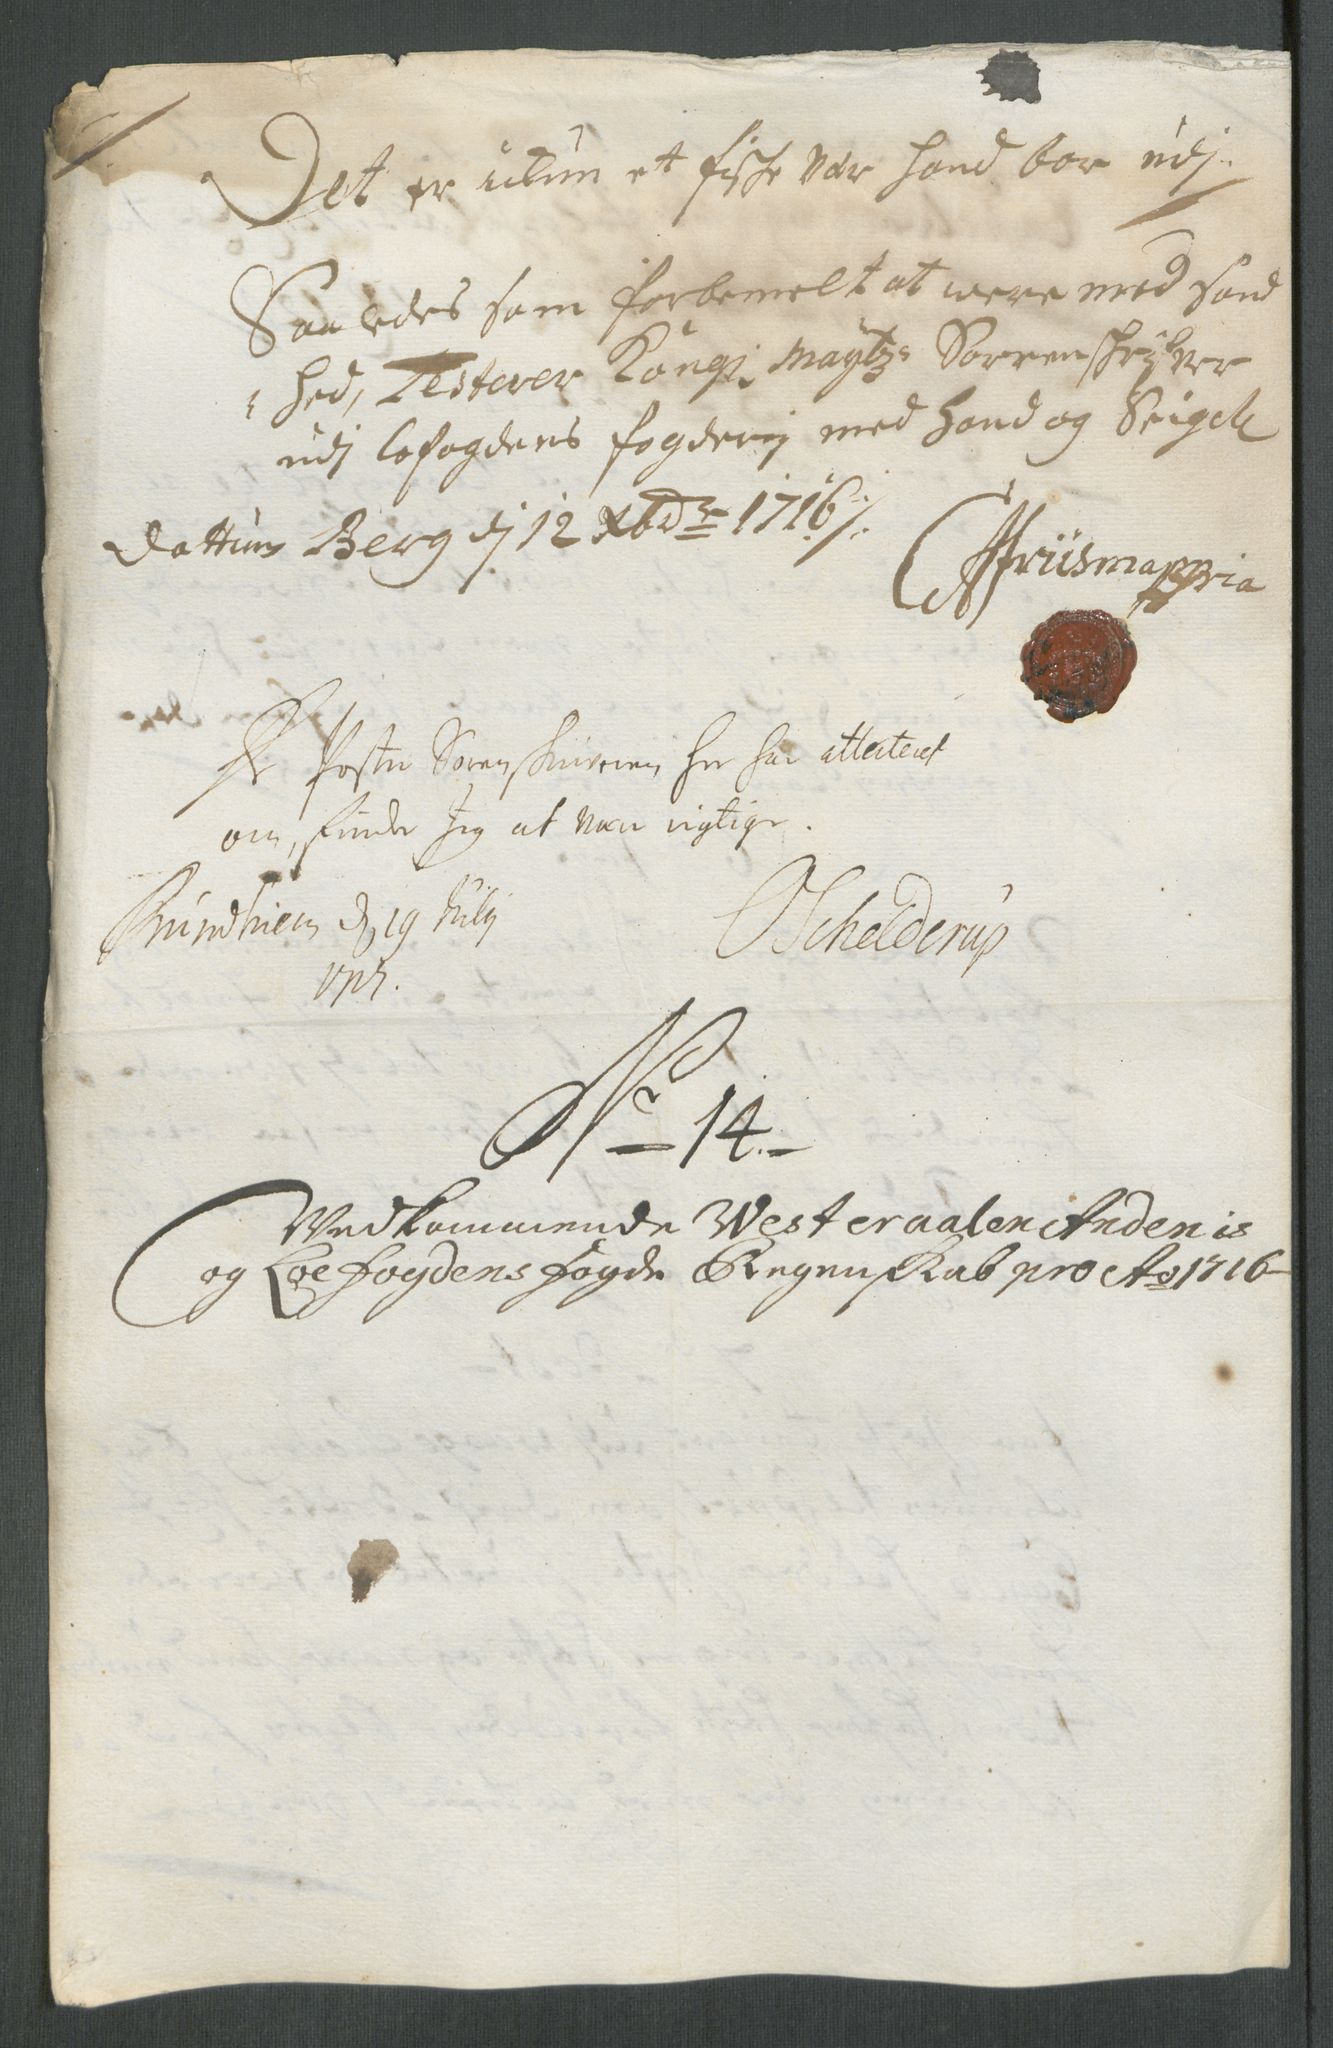 Det er ickun et fische Vær hand bor udj.
Saaledes som forbemelt at were med sand
hed, Testerer Kongl. Maytz. Sorrenschrifver
udj Lofogdens fogderij med Hand og Seigell
Dattum Berg dj 12 Xbdr 1716 /.
De Poster Sorenskriveren her har attesteret
om, finder Jeg at være rigtige.
Trundhiem d 19 Julij
OSchelderup
1717.
No 14.
Vedkommende Westeraalen Andenis
og Loefogdens fogde Regenskab pro Ao 1716